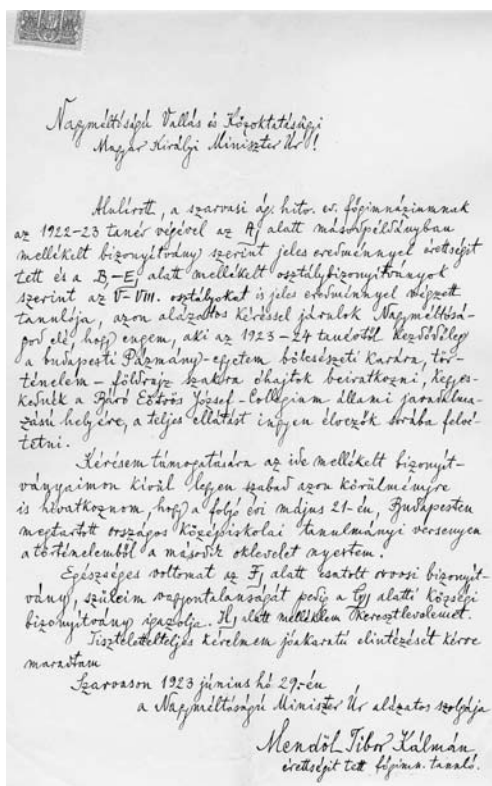 Nagyméltóságú Vallás és Közoktatásügyi
Magyar Királyi Miniszter Úr!
Alulírott, a szarvasi ág. hitv. ev. főgimnáziumnak
az 1922-23 tanév végével az A, alatt másodpéldányban
mellékelt bizonyítvány szerint jeles eredménnyel érettségit
tett és a B,-E, alatt mellékelt osztálybizonyítványok
szerint az V-VIII. osztályokat is jeles eredménnyel végzett
tanulója, azon alázatos kéréssel járulok Nagyméltósá-
god elé, hogy engem, aki az 1923-24 tanévtől kezdődőleg
a budapesti Pázmány-egyetem bölcsészeti karára, tör-
ténelem-földrajz szakra óhajtok beiratkozni, kegyes-
kednék a Báró Eötvös József-Collégium állami javadalma-
zású helyére, a teljes ellátást ingyen élvezők sorába felvé-
tetni.
Kérésem támogatására az ide mellékelt bizonyít-
ványaimon kívül legyen szabad azon körülményre
is hivatkoznom, hogy a folyó évi május 21-én, Budapesten
megtartott országos középiskolai tanulmányi versenyen
a történelemből a második oklevelet nyertem.
Egészséges voltomat az F, alatt csatolt orvosi bizonyít-
vány, szüleim vagyontalanságát pedig a G, alatti községi
bizonyítvány igazolja. H, alatt mellékelem keresztlevelemet.
Tiszteletteljes kérelmem jóakaratú elintézését kérve
maradtam
Szarvason 1923 június hó 29-én
a Nagyméltóságú Miniszter Úr alázatos szolgája
Mendöl Tibor Kálmán
érettségit tett főgimn. tanuló.